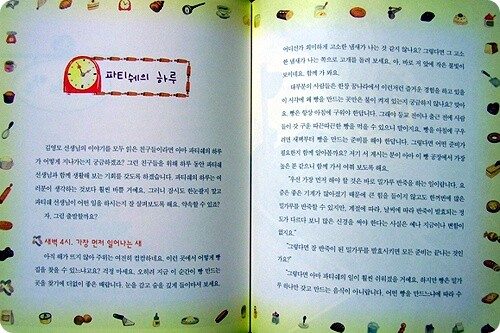 파티쉐의 하루
김영모 선생님의 이야기를 모두 읽은 친구들이라면 아마 파티쉐의 하루
가 어떻게 지나가는지 궁금하겠죠? 그런 친구들을 위해 하루 동안 파티쉐
선생님과 함께 생활해 보는 기회를 갖도록 하겠습니다. 파티쉐의 하루는 여
러분이 생각하는 것보다 훨씬 바쁠 거예요. 그러니 잠시도 한눈팔지 말고
파티쉐 선생님이 어떤 일을 하시는지 잘 살펴보도록 해요. 약속할 수 있죠?
자, 그럼 출발할까요?
새벽 4시, 가장 먼저 일어나는 새
아직 해가 뜨지 않아 주위는 여전히 컴컴하네요. 이런 곳에서 어떻게 빵
집을 찾을 수 있느냐고요? 걱정 마세요. 오히려 지금 이 순간이 빵 만드는
곳을 찾기에 더없이 좋은 때랍니다. 눈을 감고 숨을 깊게 들이마셔 보세요.
어디선가 희미하게 고소한 냄새가 나는 것 같지 않나요? 그렇다면 그 고소
한 냄새가 나는 쪽으로 고개를 돌려 보세요. 아, 바로 저 앞에 작은 불빛이
보이네요. 함께 가 봐요.
대부분의 사람들은 한창 꿈나라에서 이런저런 즐거운 경험을 하고 있을
이 시각에 왜 빵을 만드는 곳만은 불이 켜져 있는지 궁금하지 않나요? 맞아
요. 빵은 항상 아침에 구워야 한답니다. 그래야 등교 전이나 출근 전에 사람들
이 갓 구운 따끈따끈한 빵을 먹을 수 있으니 말이지요. 빵을 아침에 구우
려면 새벽부터 빵을 만드는 준비를 해야 한답니다. 그렇다면 어떤 준비가
필요한지 함께 알아볼까요? 저기 서 계시는 분이 아마 이 빵 공장에서 가장
높은 분 같으니 함께 가서 여쭤 보도록 해요.
"우선 가장 먼저 해야 할 것은 바로 밀가루 반죽을 하는 일이랍니다. 요
즘은 좋은 기계가 많아졌기 때문에 큰 힘을 들이지 않고도 한꺼번에 많은
밀가루를 반죽할 수 있지만, 계절에 따라, 날씨에 따라 반죽이 발효되는 정
도가 다르다 보니 많은 신경을 써야 한다는 사실은 예나 지금이나 변함이
없지요."
"그렇다면 잘 반죽이 된 밀가루를 발효시키면 모든 준비는 끝나는 것인
가요?"
"그렇다면 아마 파티쉐의 일이 훨씬 쉬워졌을 거예요. 하지만 빵은 밀가
루 하나만 갖고 만드는 음식이 아니랍니다. 어떤 빵을 만드느냐에 따라 수